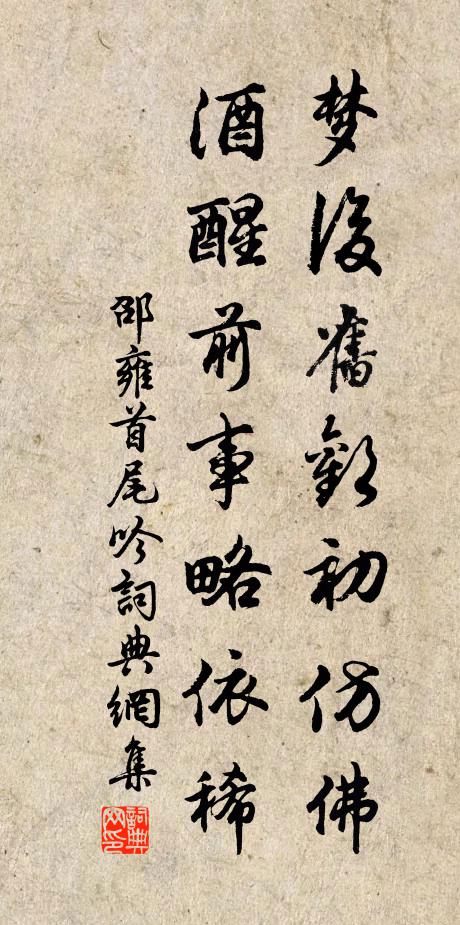 梦后舊歡初仿佛
酒醒前事略依稀
邵雍首尾吟詞典網集
詞典网印